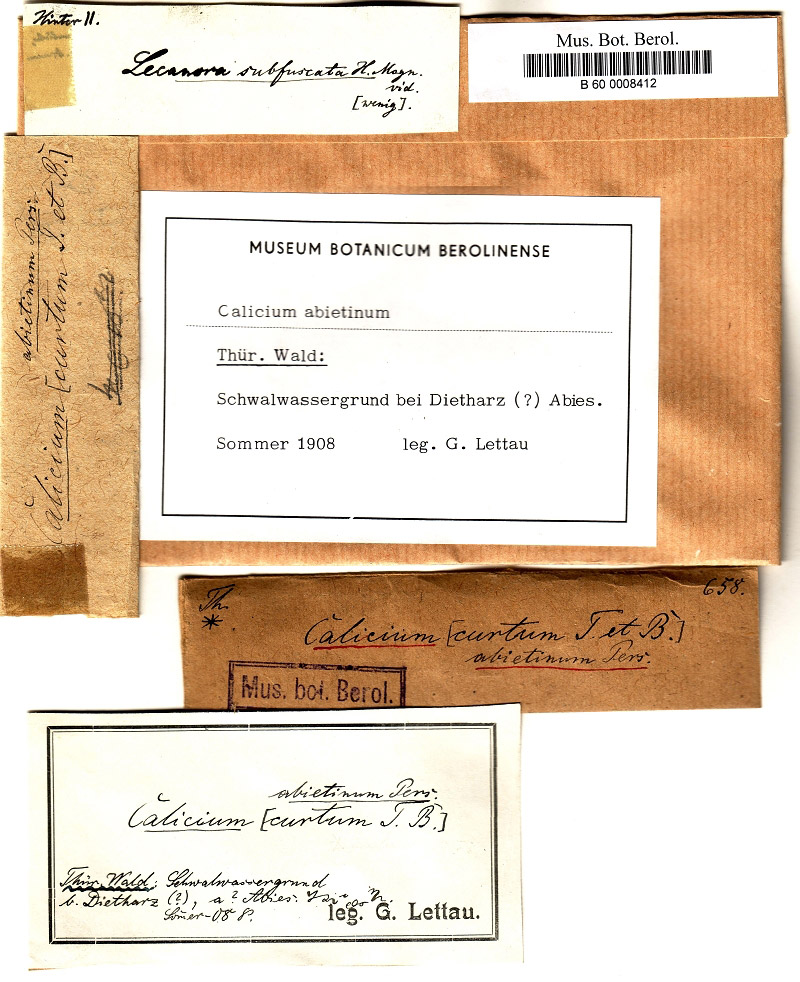 Hinter II.
Lecanora subfuscata H. Magn.
vid.
[wenig].
Mus. Bot. Berol.
B 60 0008412
abietinum Pers.
Calicium [curtum T. et B.]
MUSEUM BOTANICUM BEROLINENSE
Calicium abietinum
Thür. Wald:
Schwalwassergrund bei Dietharz (?) Abies.
Sommer 1908 leg. G. Lettau
Th.
*
658.
Calicium [curtum T. et B.]
abietinum Pers.
Mus. bot. Berol.
abietinum Pers.
Calicium [curtum T. B.]
Thür. Wald: Schwalwassergrund
b. Dietharz (?), a? Abies.
Somer-08
leg. G. Lettau.